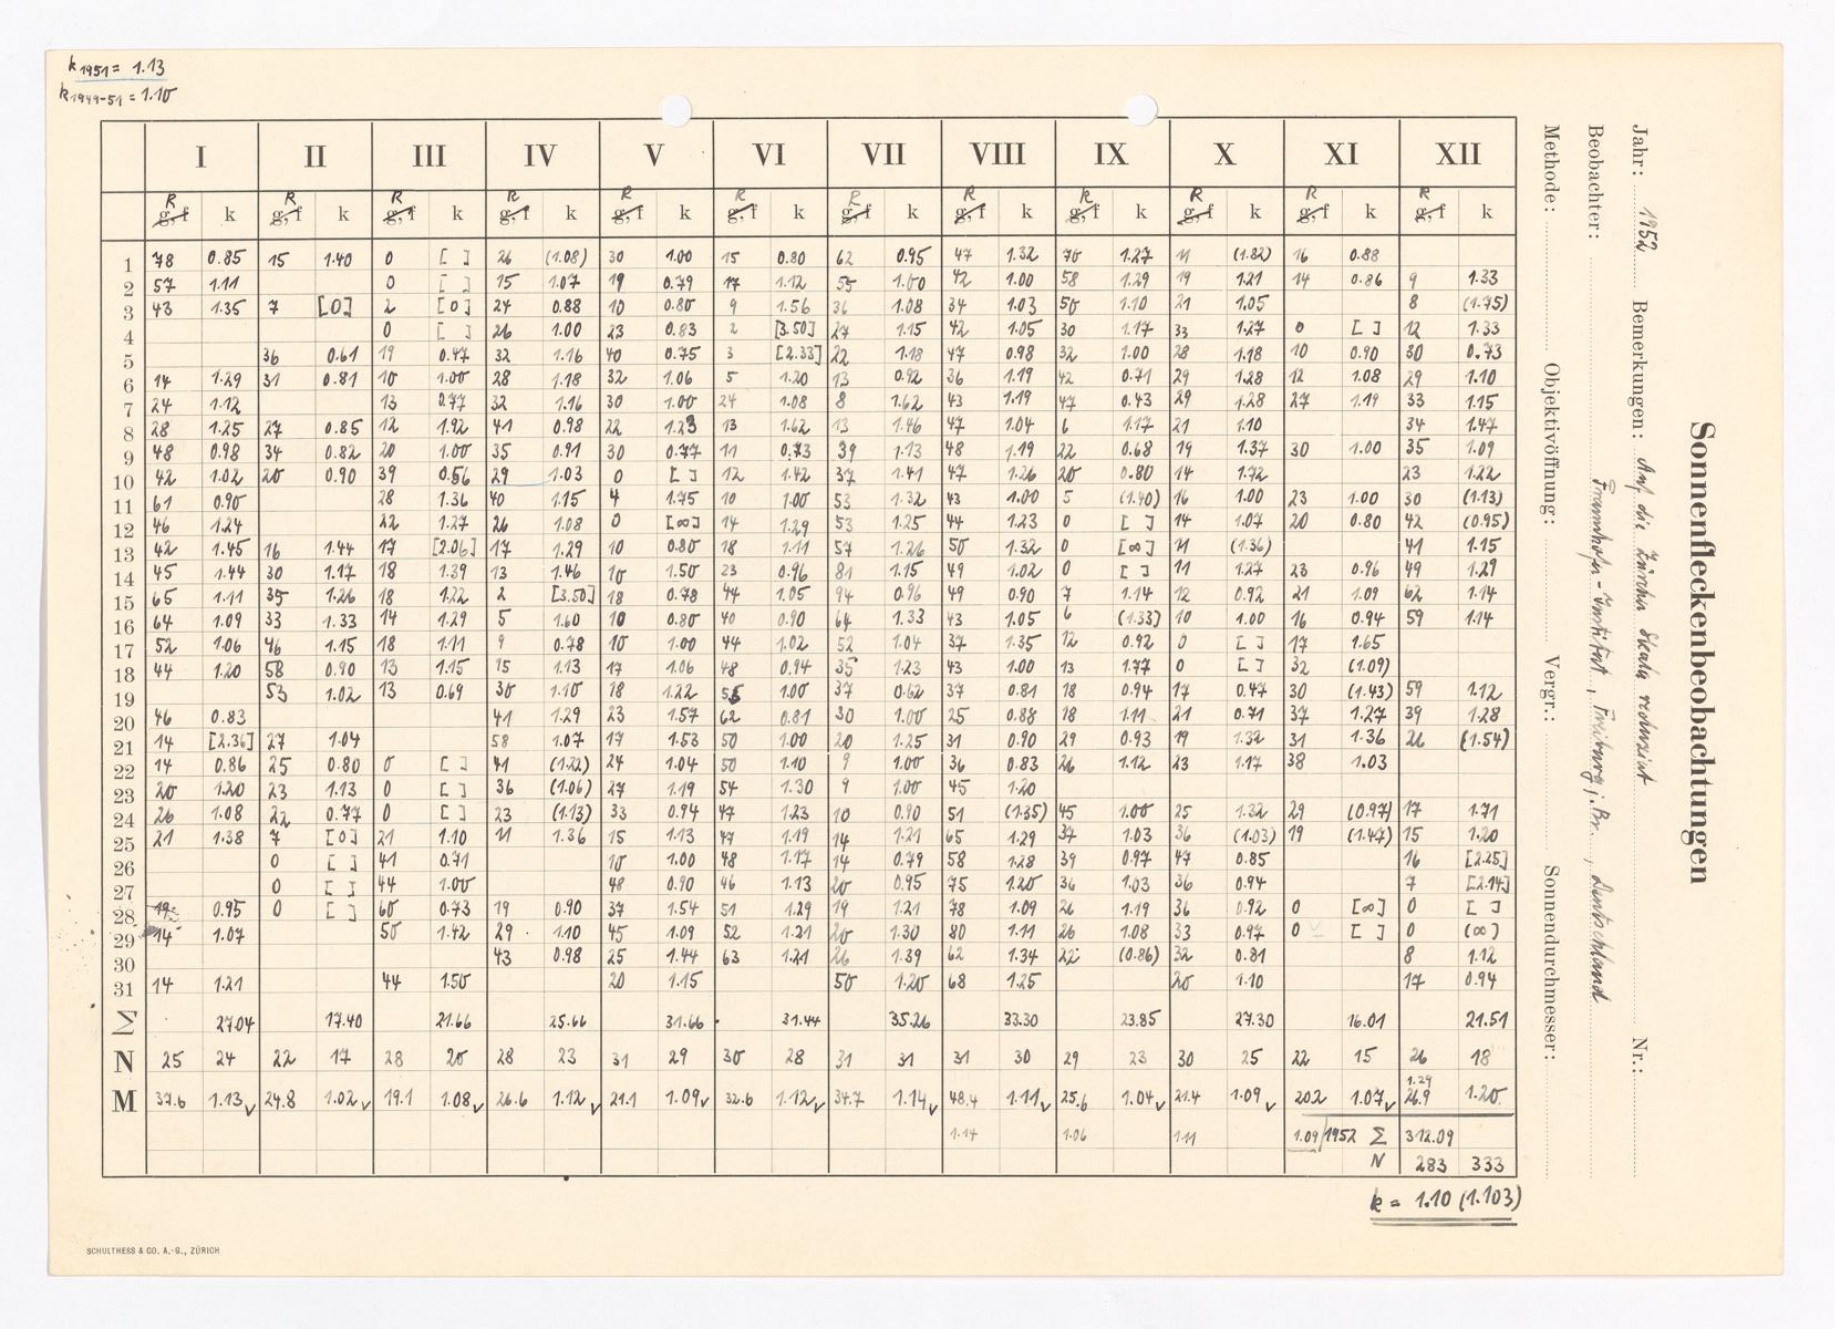 k 1951 = 1.13
k 1949-51 = 1.10
I II III IV V VI VII VIII IX X XI XII
R R R R R R R R k R R R
g, f k g, f k g, f k g, f k g, f k g, f k g, f k g, f k g, f k g, f k g, f k g, f k
1 78 0.85 15 1.40 0 [ ] 26 (1.08) 30 1.00 15 0.80 62 0.95 47 1.32 70 1.27 11 (1.82) 16 0.88
2 57 1.11 0 [ ] 15 1.07 19 0.79 17 1.12 55 1.00 42 1.00 58 1.29 19 1.21 14 0.86 9 1.33
3 43 1.35 7 [0] 2 [0] 24 0.88 10 0.80 9 1.56 36 1.08 34 1.03 50 1.10 21 1.05 8 (1.75)
4 0 [ ] 26 1.00 23 0.83 2 [3.50] 27 1.15 42 1.05 30 1.17 33 1.27 0 [ ] 12 1.33
5 36 0.61 19 0.47 32 1.16 40 0.75 3 [2.33] 22 1.18 47 0.98 32 1.00 28 1.18 10 0.90 30 0.73
6 14 1.29 31 0.81 10 1.00 28 1.18 32 1.06 5 1.20 13 0.92 36 1.19 42 0.71 29 1.28 12 1.08 29 1.10
7 24 1.12 13 0.77 32 1.16 30 1.00 24 1.08 8 1.62 43 1.19 47 0.43 29 1.28 27 1.19 33 1.15
8 28 1.25 27 0.85 12 1.92 41 0.98 22 1.23 13 1.62 13 1.46 47 1.04 6 1.17 21 1.10 34 1.47
9 48 0.98 34 0.82 20 1.00 35 0.91 30 0.77 11 0.73 39 1.13 48 1.19 22 0.68 19 1.37 30 1.00 35 1.09
10 42 1.02 20 0.90 39 0.56 29 1.03 0 [ ] 12 1.42 37 1.41 47 1.26 20 0.80 14 1.72 23 1.22
11 61 0.90 28 1.36 40 1.15 4 1.75 10 1.00 53 1.32 43 1.00 5 (1.40) 16 1.00 23 1.00 30 (1.13)
12 46 1.24 22 1.27 26 1.08 0 [∞] 14 1.29 53 1.25 44 1.23 0 [ ] 14 1.07 20 0.80 42 (0.95)
13 42 1.45 16 1.44 17 [2.06] 17 1.29 10 0.80 18 1.11 57 1.26 50 1.32 0 [∞] 11 (1.36) 41 1.15
14 45 1.44 30 1.17 18 1.39 13 1.46 10 1.50 23 0.96 81 1.15 49 1.02 0 [ ] 11 1.27 23 0.96 49 1.29
15 65 1.11 35 1.26 18 1.22 2 [3.50] 18 0.78 44 1.05 94 0.96 49 0.90 7 1.14 12 0.92 21 1.09 62 1.14
16 64 1.09 33 1.33 14 1.29 5 1.60 10 0.80 40 0.90 64 1.33 43 1.05 6 (1.33) 10 1.00 16 0.94 59 1.14
17 52 1.06 46 1.15 18 1.11 9 0.78 10 1.00 44 1.02 52 1.04 37 1.35 12 0.92 0 [ ] 17 1.65
18 44 1.20 58 0.90 13 1.15 15 1.13 17 1.06 48 0.94 35 1.23 43 1.00 13 1.77 0 [ ] 32 (1.09)
19 53 1.02 13 0.69 30 1.10 18 1.22 1.00 37 0.62 37 0.81 18 0.94 17 0.47 30 (1.43) 59 1.12
20 46 0.83 41 1.29 23 1.57 62 0.81 30 1.00 25 0.88 18 1.11 21 0.71 37 1.27 39 1.28
21 14 [2.36] 27 1.04 58 1.07 17 1.53 50 1.00 20 1.25 31 0.90 29 0.93 19 1.32 31 1.36 26 (1.54)
22 14 0.86 25 0.80 0 [ ] 41 (1.22) 24 1.04 50 1.10 9 1.00 36 0.83 26 1.12 23 1.17 38 1.03
23 20 1.20 23 1.13 0 [ ] 36 (1.06) 27 1.19 54 1.30 9 1.00 45 1.20
24 26 1.08 22 0.77 0 [ ] 23 (1.13) 33 0.94 47 1.23 10 0.90 51 (1.35) 45 1.00 25 1.32 29 (0.97) 17 1.71
25 21 1.38 7 [0] 21 1.10 11 1.36 15 1.13 47 1.19 14 1.21 65 1.29 37 1.03 36 (1.03) 19 (1.47) 15 1.20
26 0 [ ] 41 0.71 10 1.00 48 1.17 14 0.79 58 1.28 39 0.97 47 0.85 16 [2.25]
27 0 [ ] 44 1.00 48 0.90 46 1.13 20 0.95 75 1.20 36 1.03 36 0.94 7 [2.14]
28 19 0.95 0 [ ] 60 0.73 19 0.90 37 1.54 51 1.29 19 1.21 78 1.09 26 1.19 36 0.92 0 [∞] 0 [ ]
29 14 1.07 50 1.42 29 1.10 45 1.09 52 1.21 20 1.30 80 1.11 26 1.08 33 0.97 0 [ ] 0 (∞)
30 43 0.98 25 1.44 63 1.21 26 1.39 62 1.34 22 (0.86) 32 0.81 8 1.12
31 14 1.21 44 1.50 20 1.15 50 1.20 68 1.25 20 1.10 17 0.94
Σ 27.04 17.40 21.66 25.66 31.66 31.44 35.26 33.30 23.85 27.30 16.01 21.51
N 25 24 22 17 28 20 28 23 31 29 30 28 31 31 31 30 29 23 30 25 22 15 26 18
1.29
M 37.6 1.13 24.8 1.02 19.1 1.08 26.6 1.12 21.1 1.09 32.6 1.12 34.7 1.14 48.4 1.11 25.6 1.04 21.4 1.09 20.2 1.07 26.9 1.20
1.14 1.06 1.11 1.09 1952 Σ 312.09
N 283 333
k = 1.10 (1.103)
SCHULTHESS & CO. A.-G., ZÜRICH
Sonnenfleckenbeobachtungen
Jahr: 1952 Bemerkungen: Auf die Zürcher Skala reduziert Nr.:
Beobachter: Fraunhofer-Institut, Freiburg i. Br., Deutschland
Methode: Objektivöffnung: Vergr.: Sonnendurchmesser: